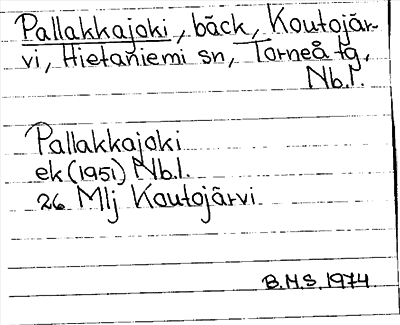 Pallakkajoki, bäck, Koutojär-
vi, Hietaniemi sn, Torneå tg,
Nb.l.
Pallakkajoki
ek (1951) Nb.l.
26 Mlj Koutojärvi
B.M.S. 1974